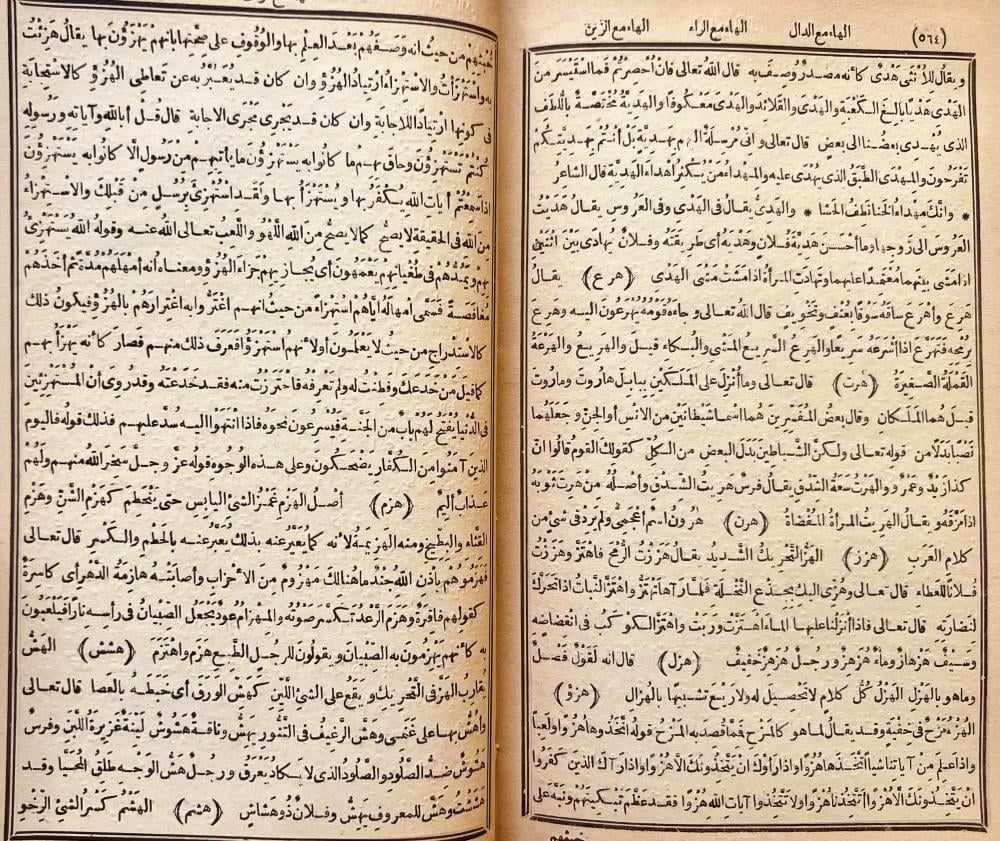 (٥٦٤) الهاء مع الدال الهاء مع الراء الهاء مع الزين
ويقال للأنثى هدى كأنه مصدر وصف به قال الله تعالى فان أحصرتم فما استيسر من
الهدى هديا بالغ الكعبة والهدى والقلائد والهدى معكوفا والهدية مختصة باللطف
الذى يهدى بعضنا الى بعض قال تعالى وانى مرسلة اليهم بهدية بل أنتم بهديتكم
تفرحون والمهدى الطبق الذى يهدى عليه والمهداء من يكثر اهداء الهدية قال الشاعر
* وانك مهداء الخنا نطف الحشا * والهدى يقال فى الهدى وفى العروس يقال هديت
العروس الى زوجها وما أحسن هدية فلان وهديه أى طريقته وفلان يهادى بين اثنين
اذا مشى بينهما معتمدا عليهما وتهادت المرأة اذا مشت مشى الهدى (هرع) يقال
هرع وأهرع ساقه سوقا بعنف وتخويف قال الله تعالى وجاءه قومه يهرعون اليه وهرع
برمحه فتهرع اذا أشرعه سريعا والهرع السريع المشى والبكاء قيل والهريع والهرعة
القملة الصغيرة (هرت) قال تعالى وما أنزل على الملكين ببابل هاروت وماروت
قيل هما الملكان وقال بعض المفسرين هما اسما شيطانين من الانس أو الجن وجعلهما
نصبا بدلا من قوله تعالى ولكن الشياطين بدل البعض من الكل كقولك القوم قالوا ان
كذا زيد وعمرو والهرت سعة الشدق يقال فرس هريت الشدق وأصله من هرت ثوبه
اذا مزقه ويقال الهريت المرأة المفضاة (هرن) هرون اسم أعجمى ولم يرد فى شئ من
كلام العرب (هزز) الهز التحريك الشديد يقال هززت الرمح فاهتز وهززت
فلانا للعطاء قال تعالى وهزى اليك بجذع النخلة فلما رآها تهتز واهتز النبات اذا تحرك
لنضارته قال تعالى فاذا أنزلنا عليها الماء اهتزت وربت واهتز الكوكب فى انقضاضه
وسيف هزهاز وماء هزهز ورجل هزهز خفيف (هزل) قال انه لقول فصل
وما هو بالهزل الهزل كل كلام لا تحصيل له ولا ريع تشبيها بالهزال (هزؤ)
الهزء مزح فى خفية وقد يقال لما هو كالمزح فما قصد به المزح قوله اتخذوها هزوا ولعبا
واذا علم من آياتنا شيأ اتخذها هزوا واذا رأوك ان يتخذونك الا هزوا واذا رآك الذين كفروا
ان يتخذونك الا هزوا أتتخذنا هزوا ولا تتخذوا آيات الله هزوا فقد عظم تبكيتهم ونبه على
خبثهم
خبثهم من حيث انه وصفهم بعد العلم بها والوقوف على صحتها بانهم يهزؤن بها يقال هزئت
به واستهزأت والاستهزاء ارتياد الهزؤ وان كان قد يعبر به عن تعاطى الهزؤ كالاستجابة
فى كونها ارتيادا للاجابة وان كان قد يجرى مجرى الاجابة قال قل أبالله وآياته ورسوله
كنتم تستهزؤن وحاق بهم ما كانوا به يستهزؤن ما يأتيهم من رسول الا كانوا به يستهزؤن
اذا سمعتم آيات الله يكفر بها ويستهزأ بها ولقد استهزئ برسل من قبلك والاستهزاء
من الله فى الحقيقة لا يصح كما لا يصح من الله اللهو واللعب تعالى الله عنه وقوله الله يستهزئ
بهم ويمدهم فى طغيانهم يعمهون أى يجازيهم جزاء الهزؤ ومعناه أنه أمهلهم مدة ثم أخذهم
مغافصة فسمى امهاله اياهم استهزاء من حيث انهم اغتروا به اغترارهم بالهزؤ فيكون ذلك
كالاستدراج من حيث لا يعلمون أو لأنهم استهزؤا فعرف ذلك منهم فصار كأنه يهزأ بهم
كما قيل من خدعك وفطنت له ولم تعرفه فاحترزت منه فقد خدعته وقد روى أن المستهزئين
فى الدنيا يفتح لهم باب من الجنة فيسرعون نحوه فاذا انتهوا اليه سد عليهم فذلك قوله فاليوم
الذين آمنوا من الكفار يضحكون وعلى هذه الوجوه قوله عز وجل سخر الله منهم ولهم
عذاب أليم (هزم) أصل الهزم غمز الشئ اليابس حتى ينحطم كهزم الشن وهزم
القثاء والبطيخ ومنه الهزيمة لأنه كما يعبر عنه بذلك يعبر عنه بالحطم والكسر قال تعالى
فهزموهم باذن الله جند ما هنالك مهزوم من الأحزاب وأصابته هازمة الدهر أى كاسرة
كقولهم فاقرة وهزم الرعد تكسر صوته والمهزام عود يجعل الصبيان فى رأسه نارا فيلعبون
به كأنهم يهزمون به الصبيان ويقولون للرجل الطبع هزم واهتزم (هشش) الهش
يقارب الهز فى التحريك ويقع على الشئ اللين كهش الورق أى خبطه بالعصا قال تعالى
وأهش بها على غنمى وهش الرغيف فى التنور يهش وناقة هشوش لينة غزيرة اللبن وفرس
هشوش ضد الصلود والصلود الذى لا يكاد يعرق ورجل هش الوجه طلق المحيا وقد
هششت وهش للمعروف يهش وفلان ذو هشاش (هشم) الهشم كسر الشئ الرخو